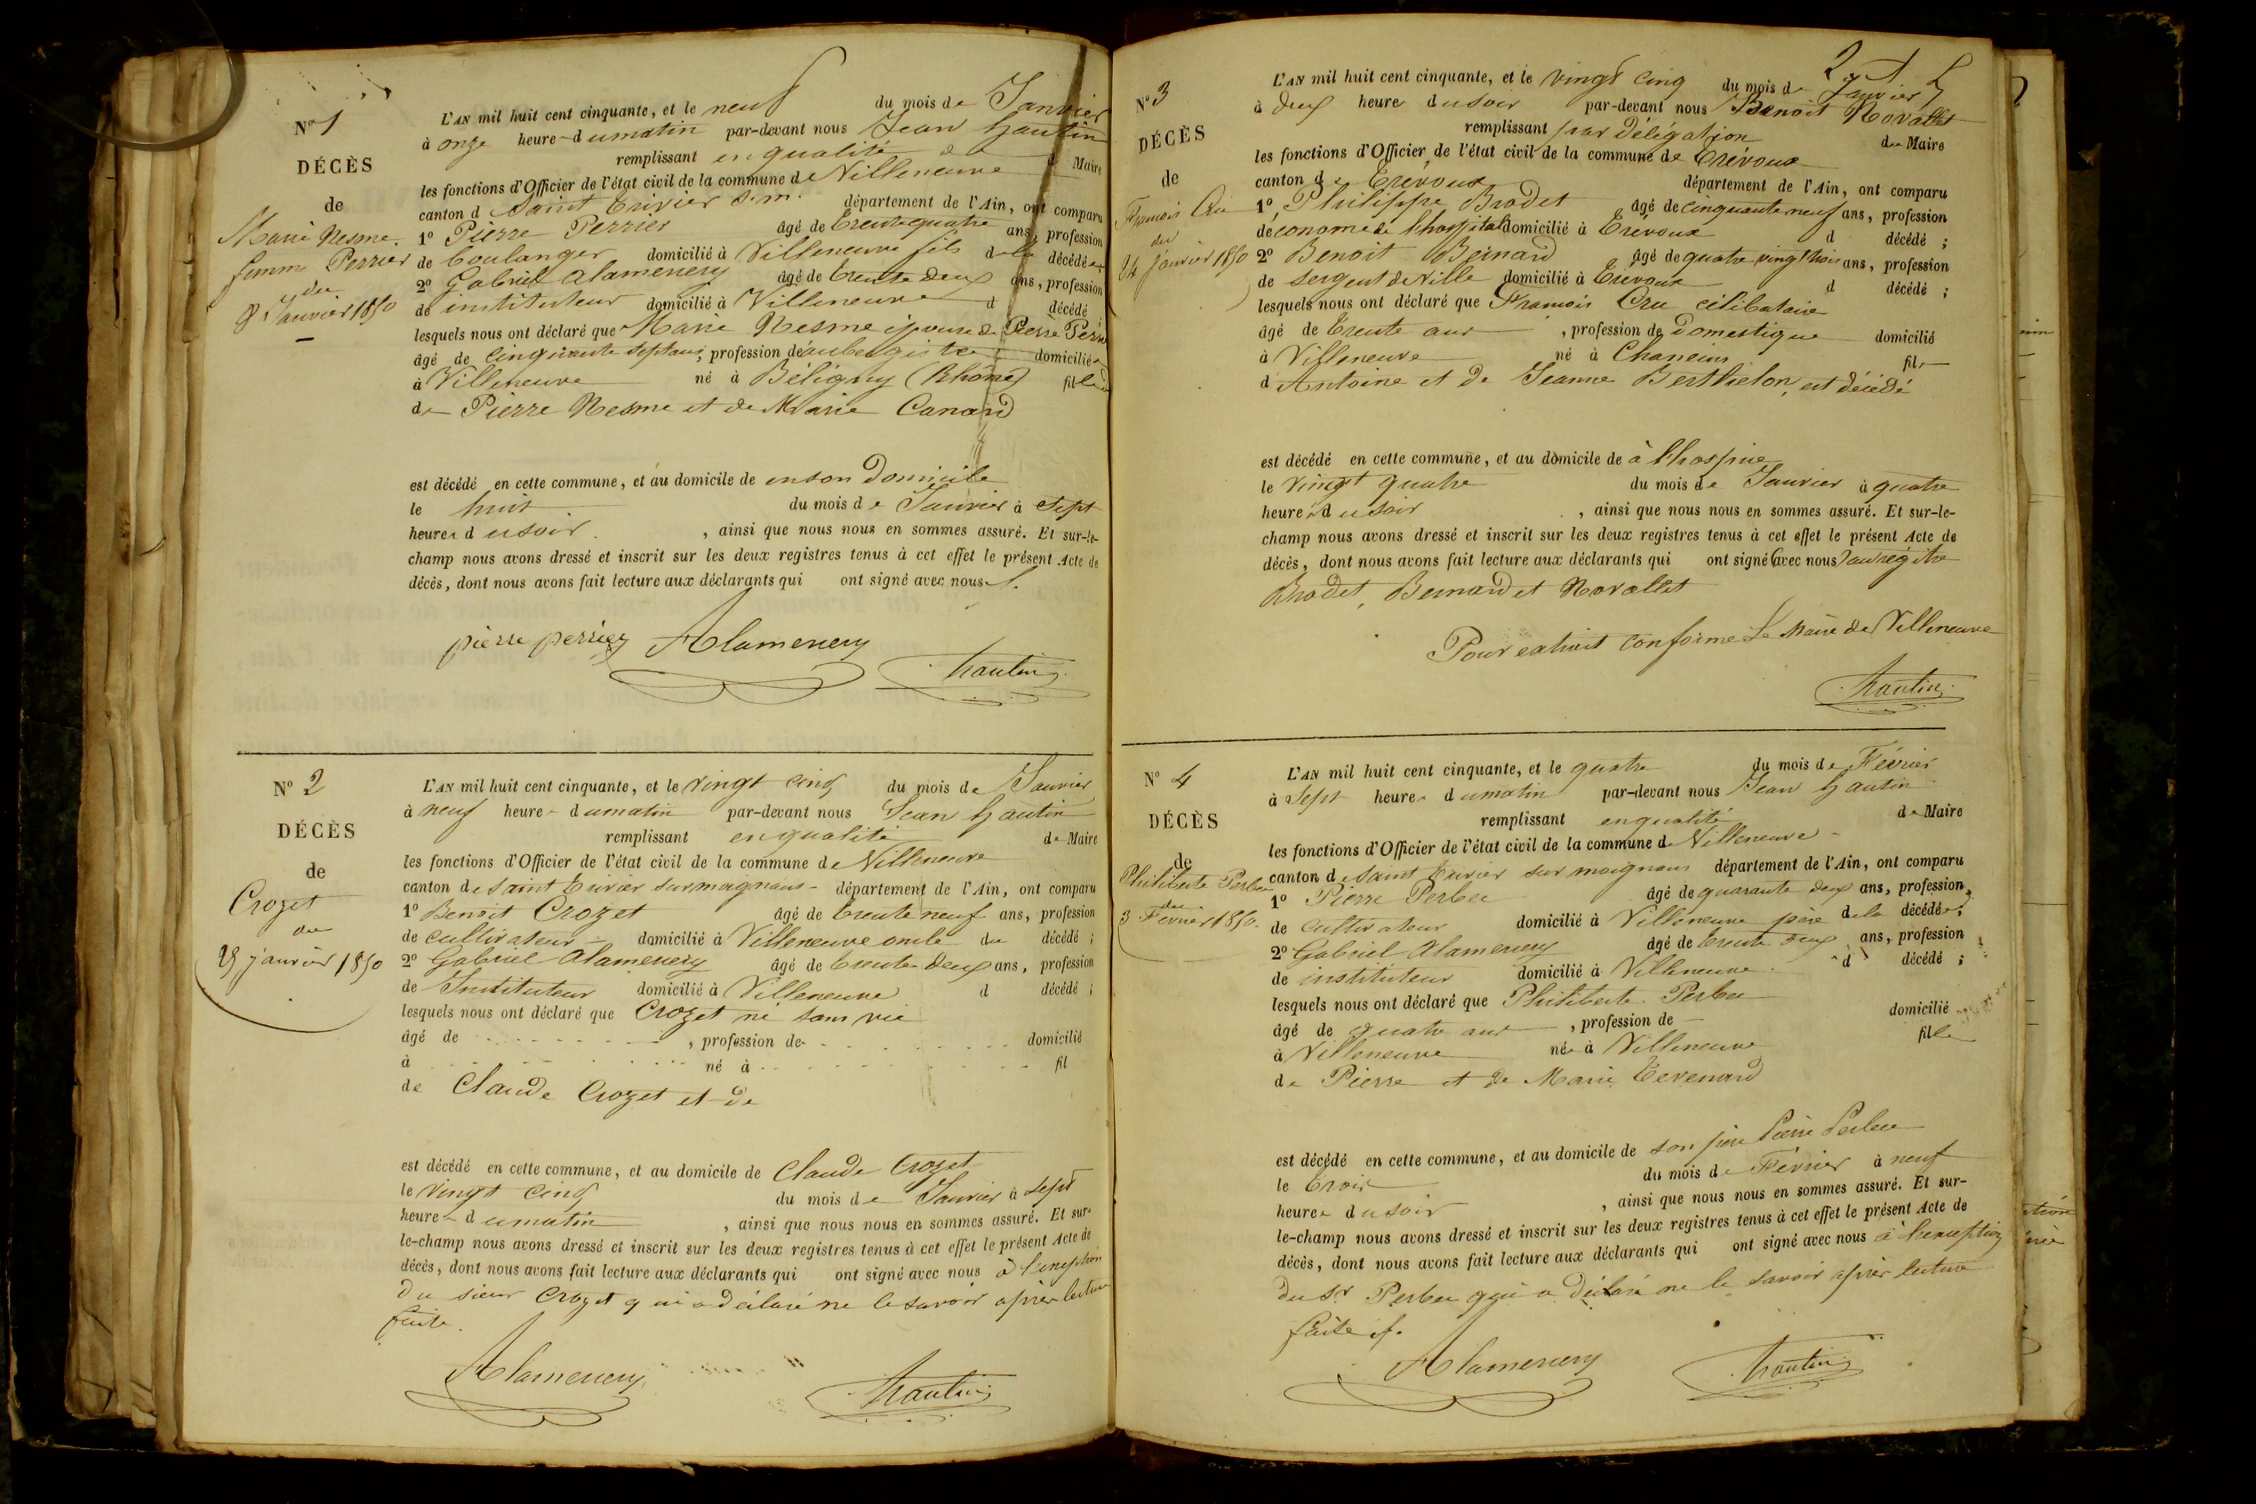 N° 1
DÉCÈS
de
Marie Nesme
femme Perrier
du
8 Janvier 1850
L'AN mil huit cent cinquante, et le neuf du mois de Janvier
à onze heure du matin par-devant nous Jean hautin
remplissant en qualité de Maire
les fonctions d'Officier de l'état civil de la commune de Villeneuve
canton d Saint Trivier s. m. département de l'Ain, ont comparu
1° Pierre Perrier âgé de trente quatre ans, profession
de boulanger domicilié à Villeneuve fils de la décédée
2° Gabriel Alamercery âgé de trente deux ans, profession
de instituteur domicilié à Villeneuve d décédé
lesquels nous ont déclaré que Marie Nesme épouse de Pierre Perrier
âgé de cinquante sept ans, profession de aubergiste domicilié
à Villeneuve né à Béligny (Rhône) fille
de Pierre Nesme et de Marie Canard
est décédé en cette commune, et au domicile de en son domicile
le huit du mois de Janvier à sept
heure du soir, ainsi que nous nous en sommes assuré. Et sur-le-
champ nous avons dressé et inscrit sur les deux registres tenus à cet effet le présent Acte de
décès, dont nous avons fait lecture aux déclarants qui ont signé avec nous
pierre perrier Alamercery hautin
N° 2
DÉCÈS
de
Crozet
du
25 janvier 1850
L'AN mil huit cent cinquante, et le vingt cinq du mois de Janvier
à neuf heure du matin par-devant nous Jean hautin
remplissant en qualité de Maire
les fonctions d'Officier de l'état civil de la commune de Villeneuve
canton de Saint Trivier sur moignans département de l'Ain, ont comparu
1° Benoit Crozet âgé de trente neuf ans, profession
de cultivateur domicilié à Villeneuve oncle du décédé ;
2° Gabriel Alamercery âgé de trente deux ans, profession
de Instituteur domicilié à Villeneuve d décédé ;
lesquels nous ont déclaré que Crozet né sans vie
âgé de , profession de domicilié
à né à fil
de Claude Crozet et de
est décédé en cette commune, et au domicile de Claude Crozet
le vingt cinq du mois de Janvier à sept
heure du matin, ainsi que nous nous en sommes assuré. Et sur-
le-champ nous avons dressé et inscrit sur les deux registres tenus à cet effet le présent Acte de
décès, dont nous avons fait lecture aux déclarants qui ont signé avec nous à l'exception
du sieur Crozet qui a déclaré ne le savoir après lecture
faite.
Alamercery hautin
2
N° 3
DÉCÈS
de
François Cru
du
24 janvier 1850
L'AN mil huit cent cinquante, et le vingt cinq du mois de Janvier
à deux heure du soir par-devant nous Benoit Novallet
remplissant par délégation du Maire
les fonctions d'Officier de l'état civil de la commune de Trévoux
canton de Trévoux département de l'Ain, ont comparu
1° Philippe Brodet âgé de cinquante neuf ans, profession
d'économe de l'hospital domicilié à Trévoux d décédé ;
2° Benoit Bernard âgé de quatre vingt trois ans, profession
de sergent de Ville domicilié à Trévoux d décédé ;
lesquels nous ont déclaré que François Cru célibataire
âgé de trente ans, profession de domestique domicilié
à Villeneuve né à Chaneins fils
d'Antoine et de Jeanne Berthelon, est décédé
est décédé en cette commune, et au domicile de à l'hospice
le vingt quatre du mois de Janvier à quatre
heure du soir, ainsi que nous nous en sommes assuré. Et sur-le-
champ nous avons dressé et inscrit sur les deux registres tenus à cet effet le présent Acte de
décès, dont nous avons fait lecture aux déclarants qui ont signé (avec nous) au régitre
Brodet, Bernard et Novallet
Pour extrait conforme Le Maire de Villeneuve
hautin
N° 4
DÉCÈS
de
Philiberte Perbet
du
3 Février 1850.
L'AN mil huit cent cinquante, et le quatre du mois de Février
à Sept heure du matin par-devant nous Jean hautin
remplissant en qualité de Maire
les fonctions d'Officier de l'état civil de la commune de Villeneuve
canton de Saint Trivier sur moignans département de l'Ain, ont comparu
1° Pierre Perbet âgé de quarante deux ans, profession
de cultivateur domicilié à Villeneuve père de la décédée ;
2° Gabriel Alamercery âgé de trente deux ans, profession
de instituteur domicilié à Villeneuve d décédé ;
lesquels nous ont déclaré que Philiberte Perbet
âgé de quatre ans, profession de domicilié
à Villeneuve née à Villeneuve fille
de Pierre et de Marie Tevenard
est décédé en cette commune, et au domicile de son père Pierre Perbet
le trois du mois de Février à neuf
heure du soir, ainsi que nous nous en sommes assuré. Et sur-
le-champ nous avons dressé et inscrit sur les deux registres tenus à cet effet le présent Acte de
décès, dont nous avons fait lecture aux déclarants qui ont signé avec nous à l'exception
du Sr Perbet qui a déclaré ne le savoir après lecture
faite
Alamercery hautin